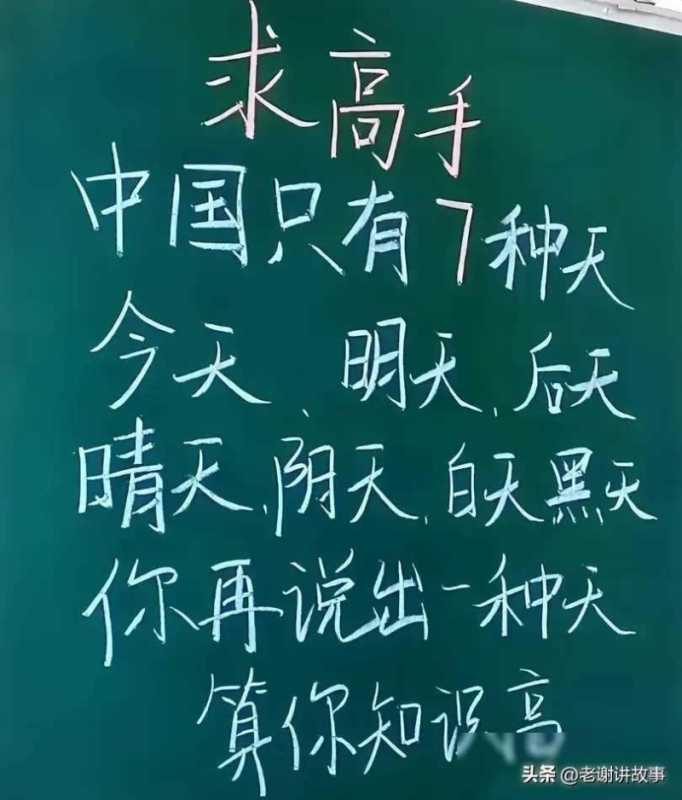 求高手
中国只有7种天
今天、明天、后天
晴天、阴天、白天黑天
你再说出一种天
算你知识高
头条 @老谢讲故事